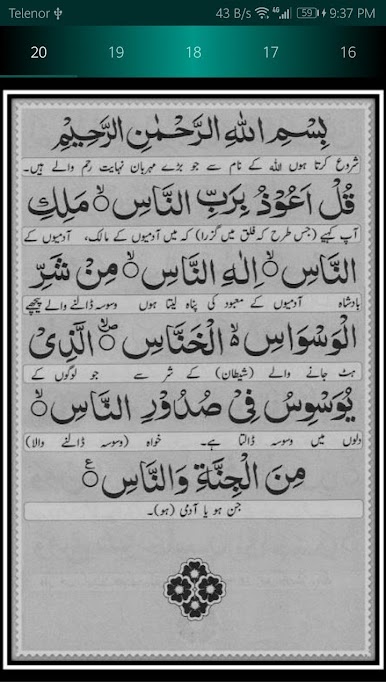 Telenor 43 B/s 4G 59 9:37 PM
20 19 18 17 16
بِسْمِ اللهِ الرَّحْمٰنِ الرَّحِيْمِ
شروع کرتا ہوں اللہ کے نام سے جو بڑے مہربان نہایت رحم والے ہیں۔
قُلْ اَعُوْذُ بِرَبِّ النَّاسِ ۙ مَلِكِ
آپ کہیے (جس طرح کہ فلق میں گزرا) کہ میں آدمیوں کے مالک، آدمیوں کے
النَّاسِ ۙ اِلٰهِ النَّاسِ ۙ مِنْ شَرِّ
بادشاہ آدمیوں کے معبود کی پناہ لیتا ہوں وسوسہ ڈالنے والے پیچھے
الْوَسْوَاسِ ۙ الْخَنَّاسِ ۙ الَّذِىْ
ہٹ جانے والے (شیطان) کے شر سے جو لوگوں کے
يُوَسْوِسُ فِىْ صُدُوْرِ النَّاسِ ۙ
دلوں میں وسوسہ ڈالتا ہے۔ خواہ (وسوسہ ڈالنے والا)
مِنَ الْجِنَّةِ وَالنَّاسِ ع
جن ہو یا آدمی (ہو)۔